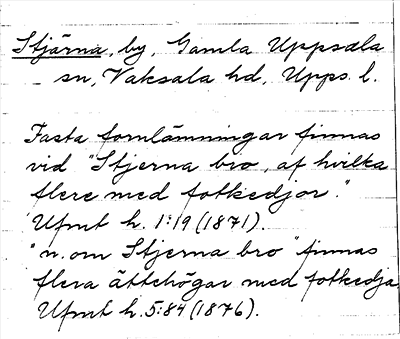 Stjärna, by, Gamla Uppsala
sn, Vaksala hd, Upps. l.
Fasta fornlämningar finnas
vid "Stjerna bro, af hvilka
flere med fotkedjor."
Ufmt h. 1:19 (1871).
"n. om Stjerna bro" finnas
flera ättehögar med fotkedja
Ufmt h. 5:84 (1876).